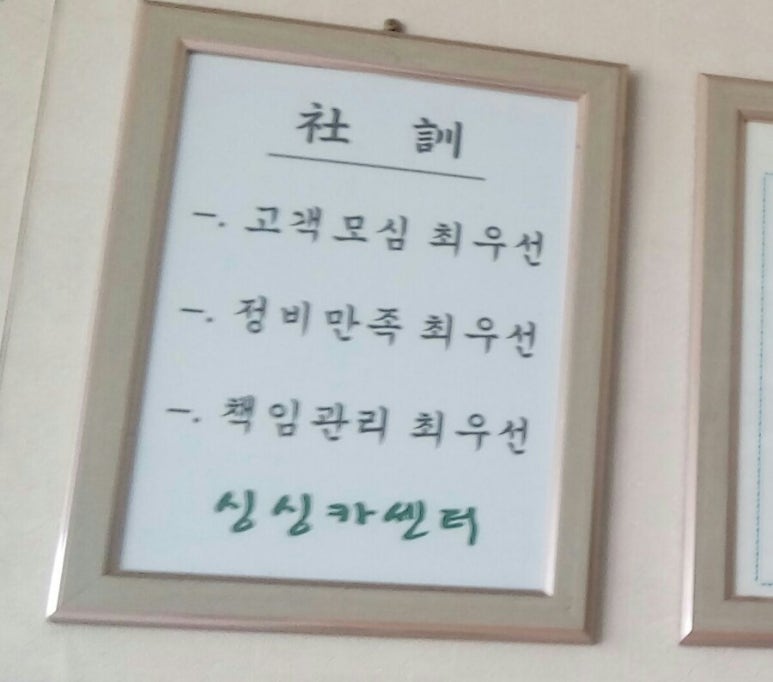 社 訓
一. 고객모심 최우선
一. 정비만족 최우선
一. 책임관리 최우선
싱싱카센터